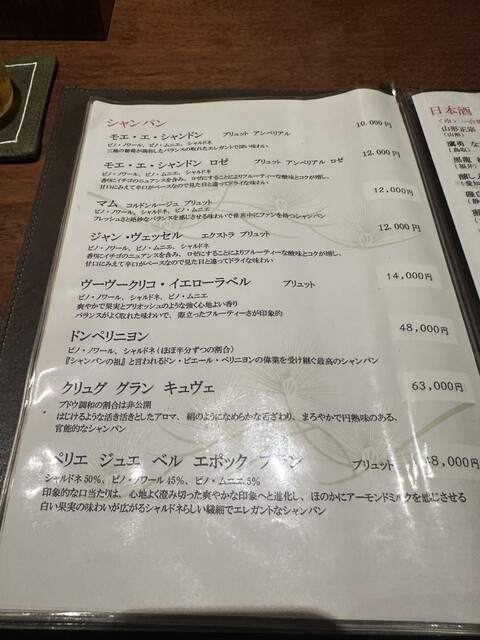 シャンパン
モエ・エ・シャンドン　ブリュット アンペリアル　10,000円
ピノ・ノワール、ピノ・ムニエ、シャルドネ
三種の葡萄が調和したバランスの取れたエレガントで深い味わい
モエ・エ・シャンドン ロゼ　ブリュット アンペリアル ロゼ　12,000円
ピノ・ノワール、ピノ・ムニエ、シャルドネ
香りにイチゴのニュアンスを含み、ロゼにすることによりフルーティーな酸味とコクが増し、
甘口にみえて辛口がベースなので見た目と違ってドライな味わい
マム コルドンルージュ ブリュット　12,000円
ピノ・ノワール、シャルドネ、ピノ・ムニエ
フレッシュさと絶妙なバランスを感じさせる味わいで世界中にファンを持つシャンパン
ジャン・ヴェッセル　エクストラ ブリュット　12,000円
ピノ・ノワール、ピノ・ムニエ、シャルドネ
香りにイチゴのニュアンスを含み、ロゼにすることによりフルーティーな酸味とコクが増し、
甘口にみえて辛口がベースなので見た目と違ってドライな味わい
ヴーヴークリコ・イエローラベル　ブリュット　14,000円
ピノ・ノワール、シャルドネ、ピノ・ムニエ
爽やかで果実とブリオッシュのような強く心地よい香り
バランスがよく取れた味わいで、際立ったフルーティーさが印象的
ドンペリニヨン　48,000円
ピノ・ノワール、シャルドネ(ほぼ半分ずつの割合)
『シャンパンの祖』と言われるドン・ピエール・ペリニヨンの偉業を受け継ぐ最高のシャンパン
クリュグ グラン キュヴェ　63,000円
ブドウ調和の割合は非公開
はじけるような活き活きとしたアロマ、絹のようになめらかな舌ざわり、まろやかで円熟味のある、
官能的なシャンパン
ペリエ ジュエ ベル エポック ブラン　ブリュット　48,000円
シャルドネ 50%、ピノ・ノワール 45%、ピノ・ムニエ 5%
印象的な口当たりは、心地よく澄み切った爽やかな印象へと進化し、ほのかにアーモンドミルクを感じさせる
白い果実の味わいが広がるシャルドネらしい繊細でエレガントなシャンパン
日本酒
〈冷〉一合
山形正宗
(山形)
鷹勇 な
(鳥取)
黒龍
(福井)
醸し人
(愛知
磯自
(静